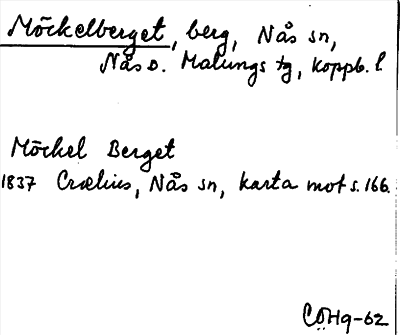 Möckelberget, berg, Nås sn,
Nås o. Malungs tg, Koppb. l.
Möckel Berget
1837 Crælius, Nås sn, karta mot s. 166.
CÖHg-62